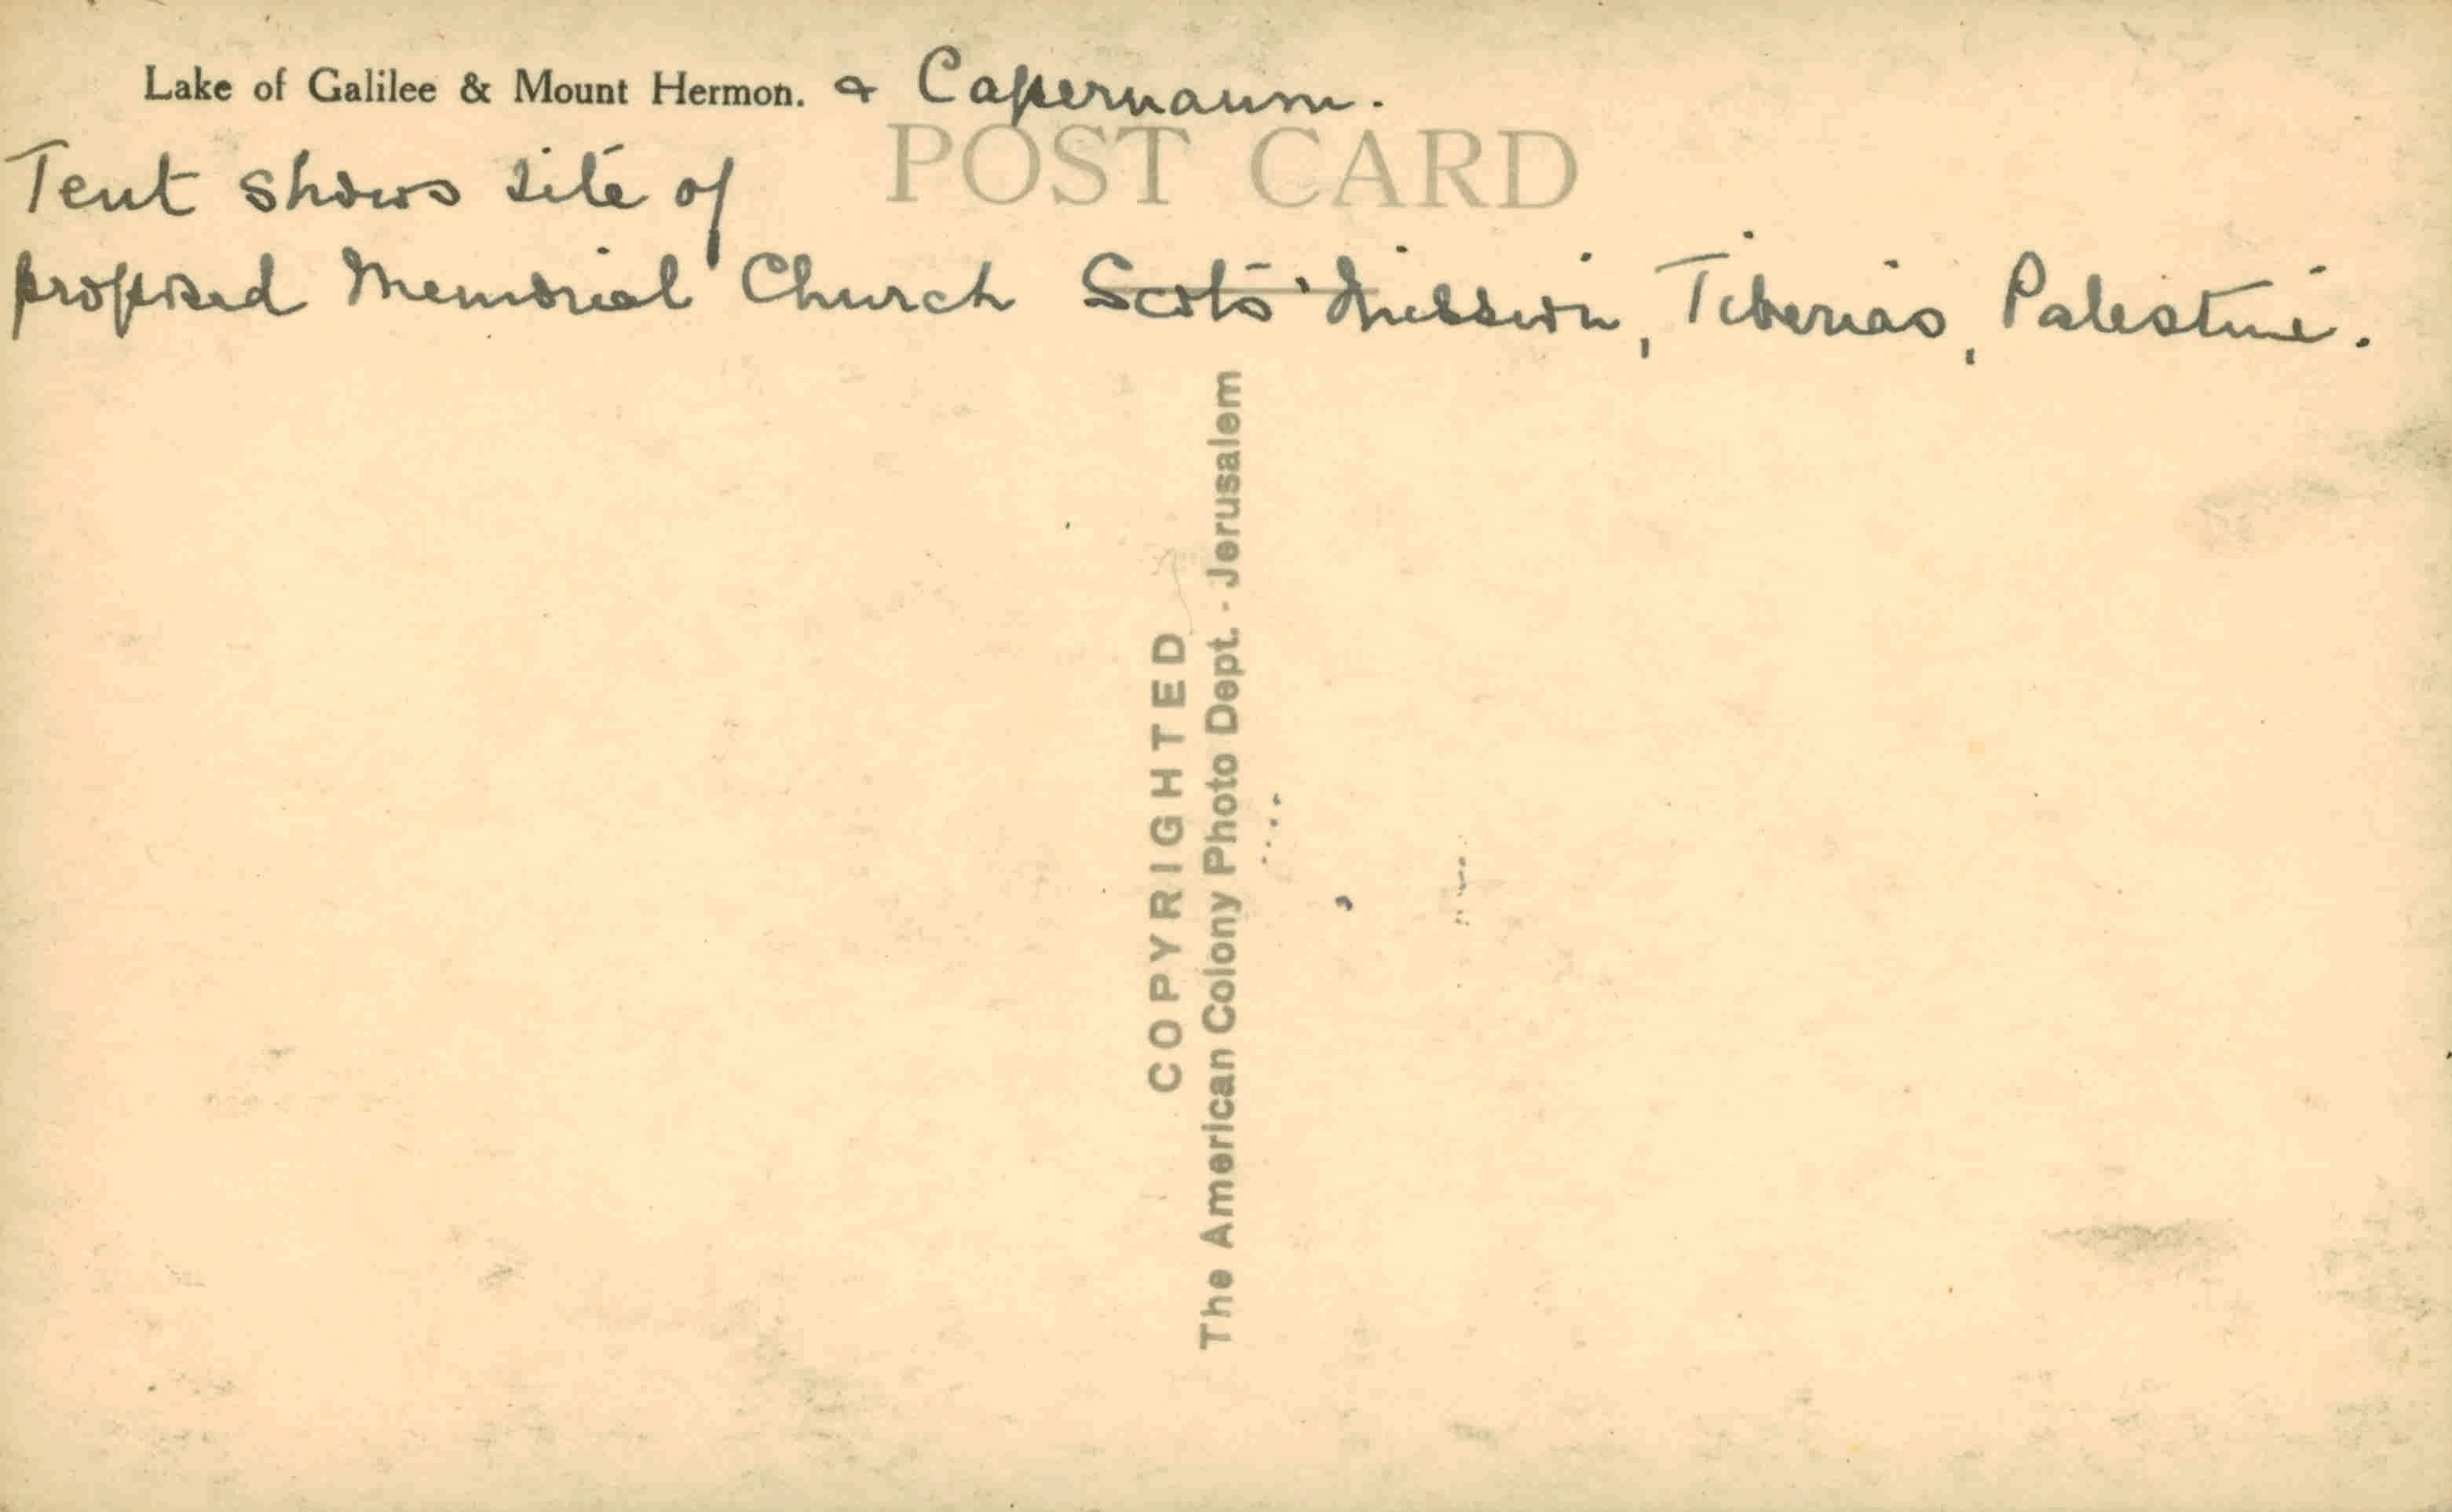 Lake of Galilee & Mount Hermon. & Capernaum.
POST CARD
Tent shows site of
proposed Memorial Church Scots' Mission, Tiberias, Palestine.
COPYRIGHTED
The American Colony Photo Dept. - Jerusalem